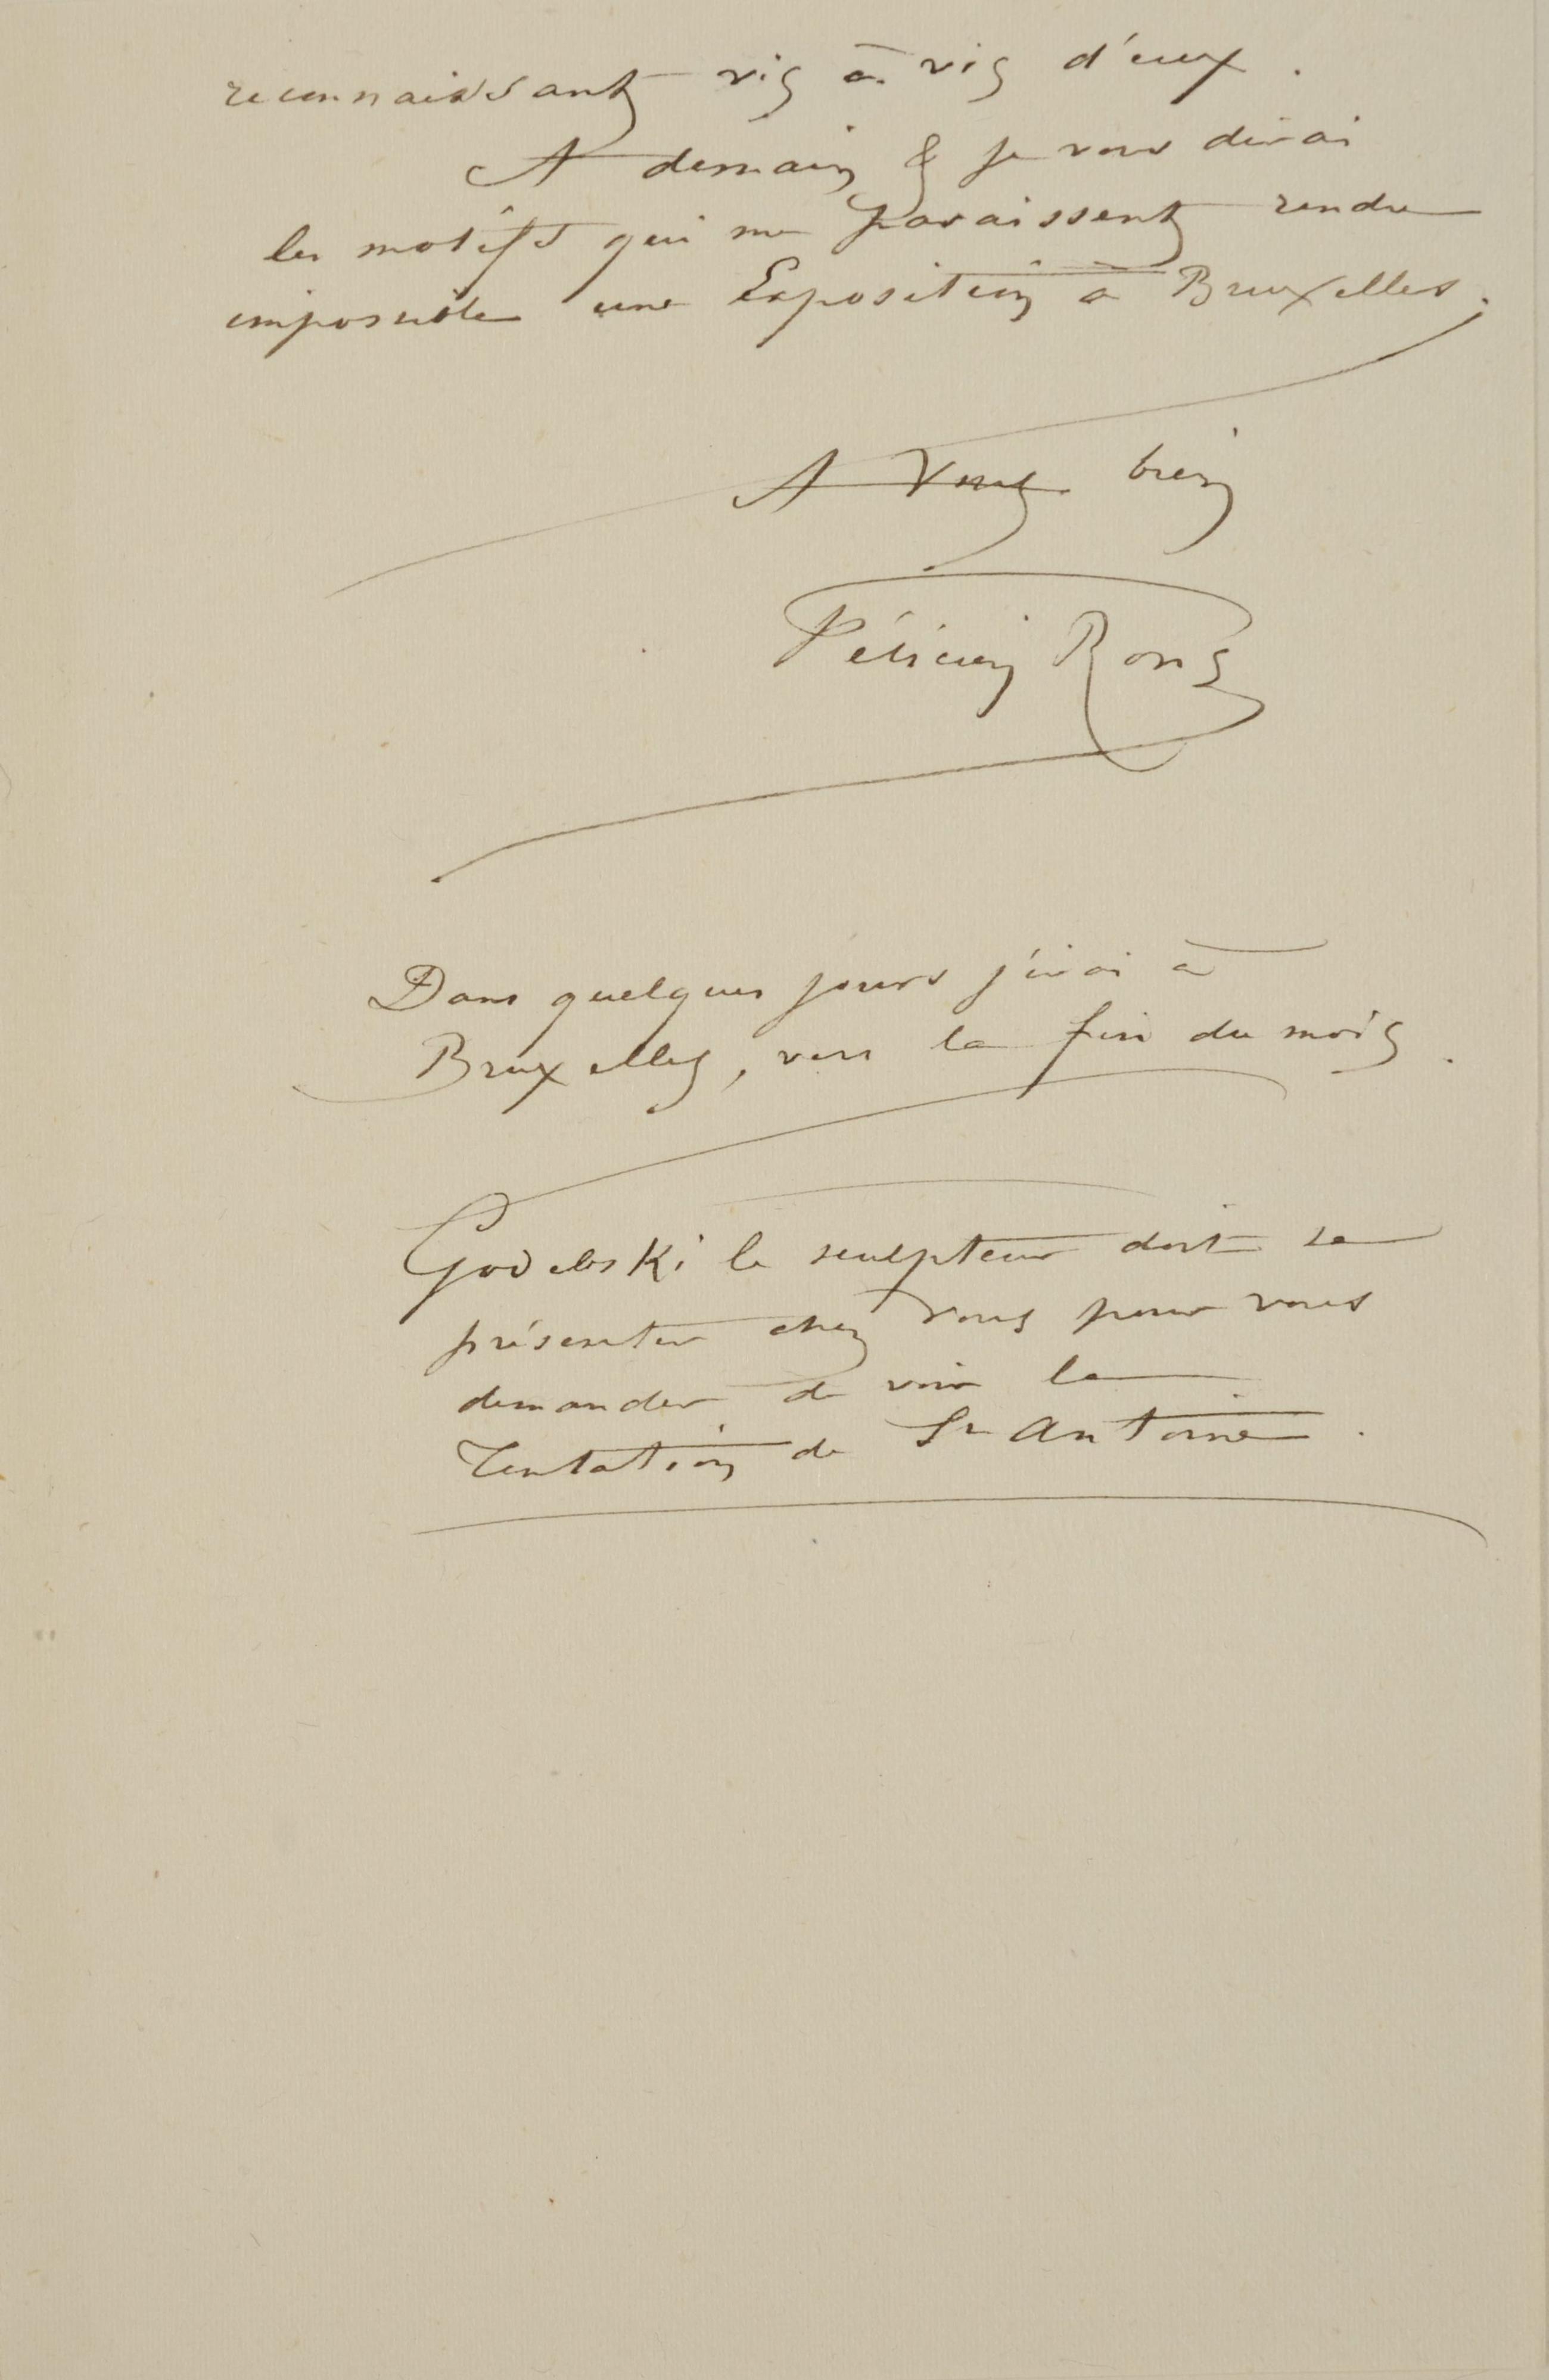 reconnaissant vis à vis d'eux.
A demain & je vous dirai
les motifs qui me paraissent rendre
impossible une Exposition à Bruxelles.
A Vous bien
Félicien Rops
Dans quelques jours j'irai à
Bruxelles, vers la fin du mois.
Godebski le sculpteur doit se
présenter chez vous pour vous
demander de voir la
Tentation de St Antoine.